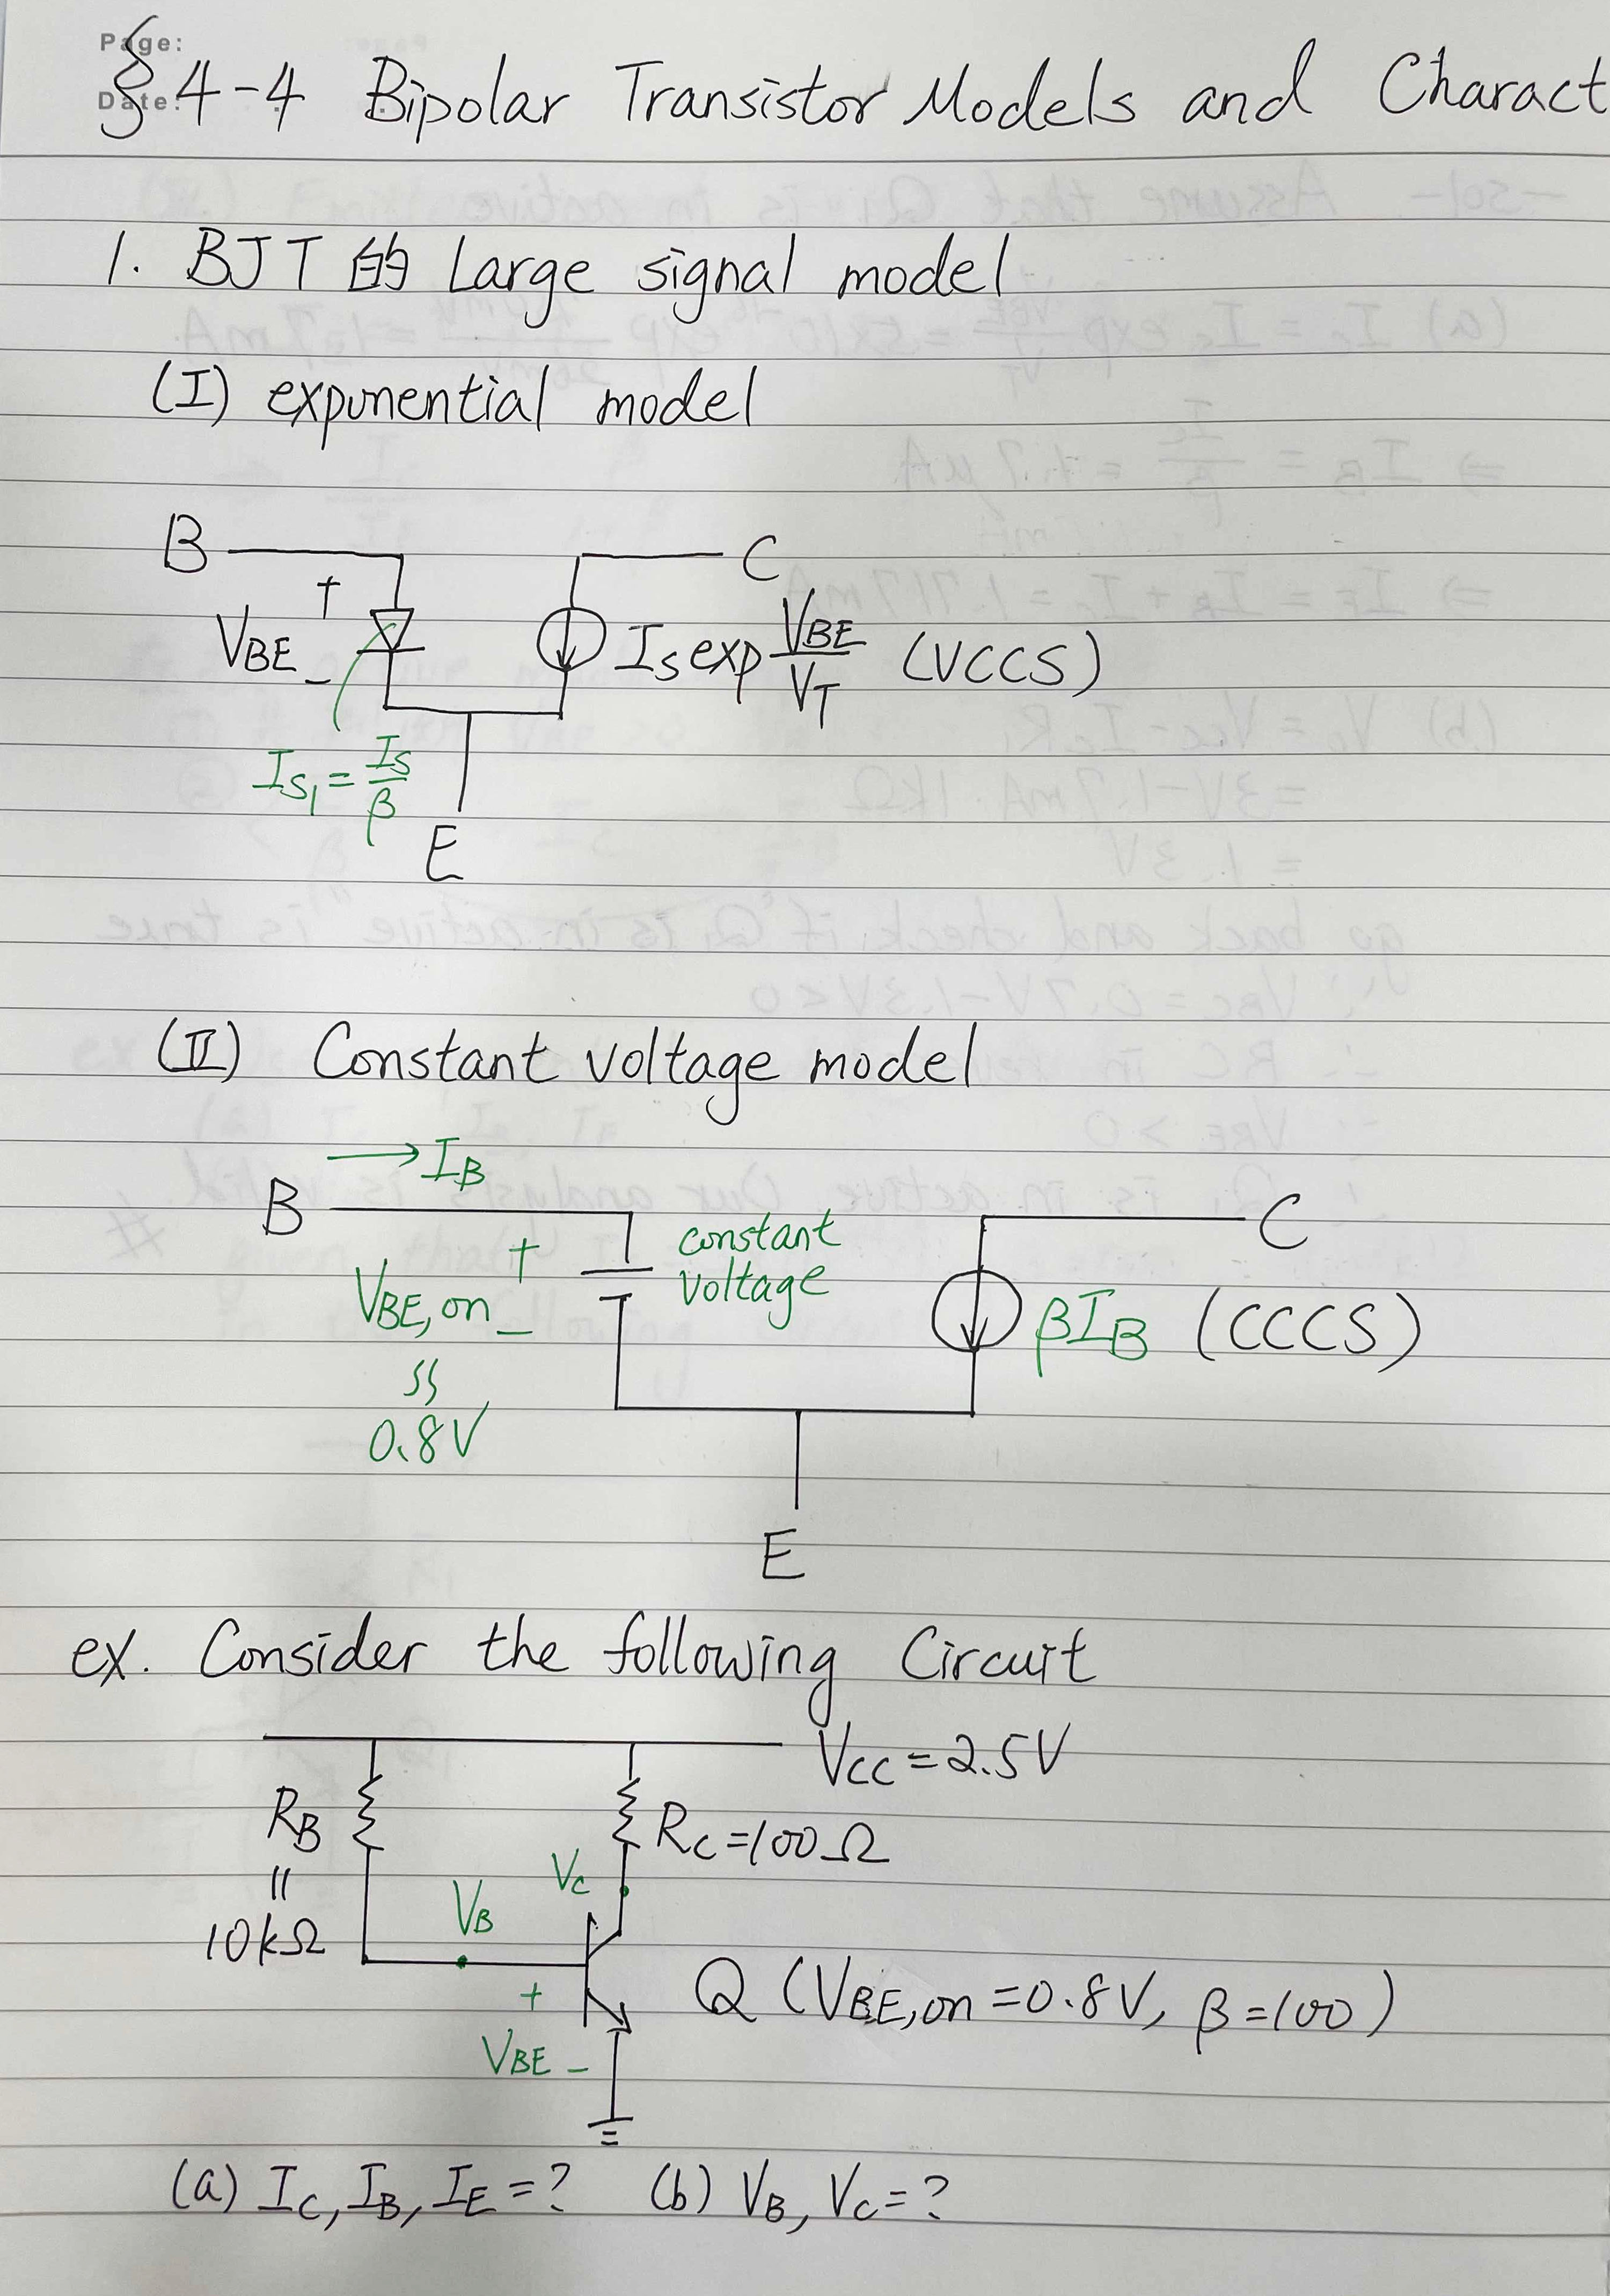 Page:
Date:
§ 4-4 Bipolar Transistor Models and Charact
1. BJT 的 Large signal model
(I) exponential model
B C
+
VBE
-
Is exp VBE/VT (VCCS)
IS1 = IS/β
E
(II) Constant voltage model
→ IB
B C
+ constant
VBE,on voltage
-
βIB (CCCS)
≈
0.8V
E
ex. Consider the following Circuit
VCC = 2.5V
RB RC = 100Ω
=
10kΩ
VC
VB
+
VBE -
Q (VBE,on = 0.8V, β = 100)
(a) IC, IB, IE = ? (b) VB, VC = ?